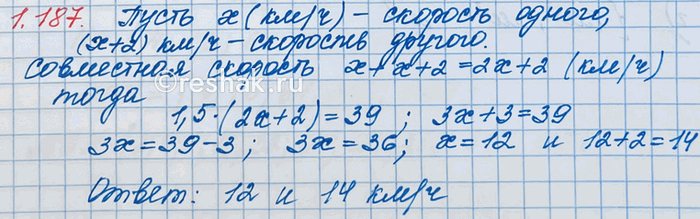 1.187. Пусть x (км/ч) – скорость одного,
(x+2) км/ч – скорость другого.
Совместная скорость x+x+2=2x+2 (км/ч)
тогда
1,5·(2x+2)=39; 3x+3=39
3x=39-3; 3x=36; x=12 и 12+2=14
Ответ: 12 и 14 км/ч
©reshak.ru